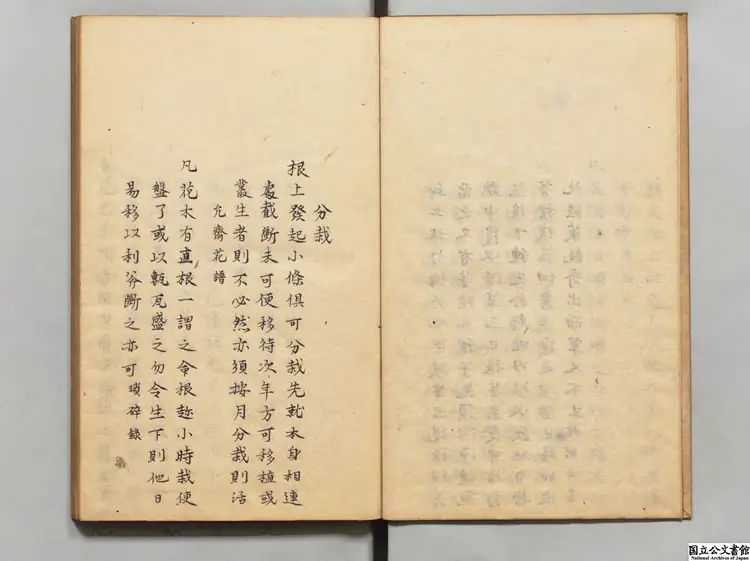 分栽
根上發起小條俱可分栽先就本身相連
處截斷未可便移待次年方可移植或
叢生者則不必然亦須按月分栽則活
允齋花譜
凡花木有直根一謂之命根趂小時栽便
盤了或以瓶瓦盛之勿令生下則他日
易移以利斧斷之亦可瑣碎錄
国立公文書館
National Archives of Japan